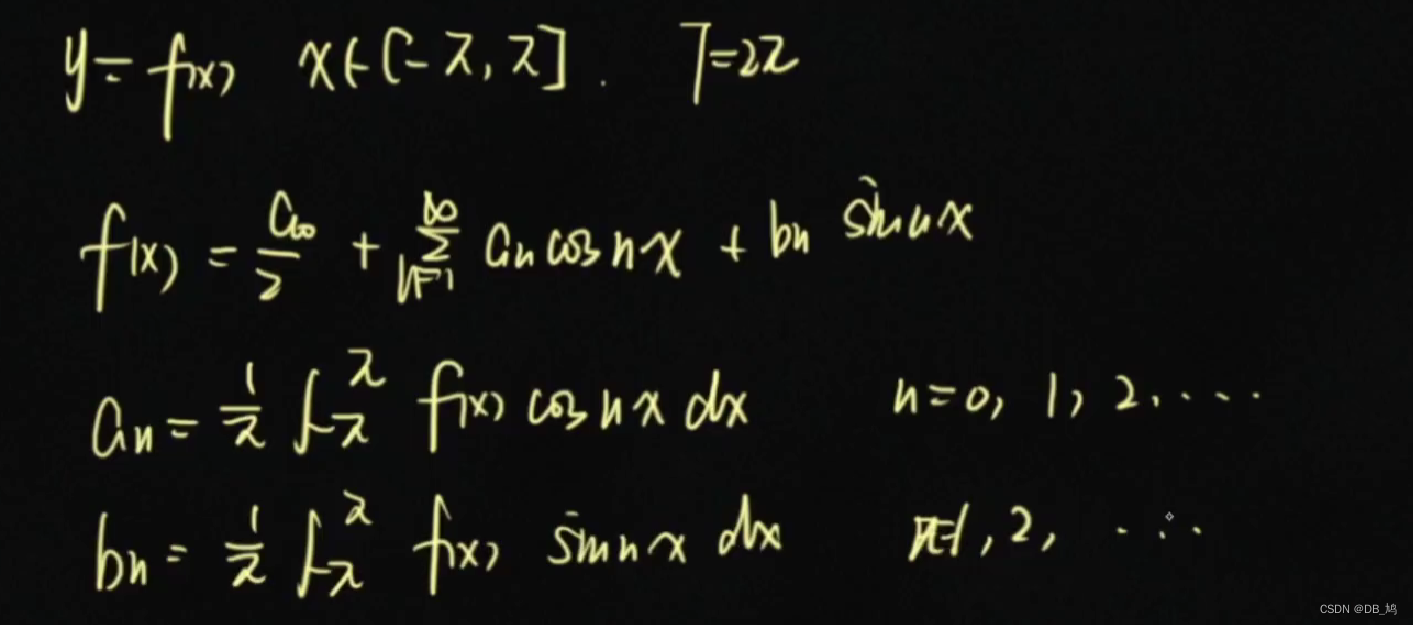 y = f(x) x∈[-π, π]. T=2π
f(x) = a₀/2 + ∑_{n=1}^{∞} aₙ cos nx + bₙ sin nx
aₙ = 1/π ∫_{-π}^{π} f(x) cos nx dx n=0, 1, 2, ....
bₙ = 1/π ∫_{-π}^{π} f(x) sin nx dx n=1, 2, ...
CSDN @DB_鸠